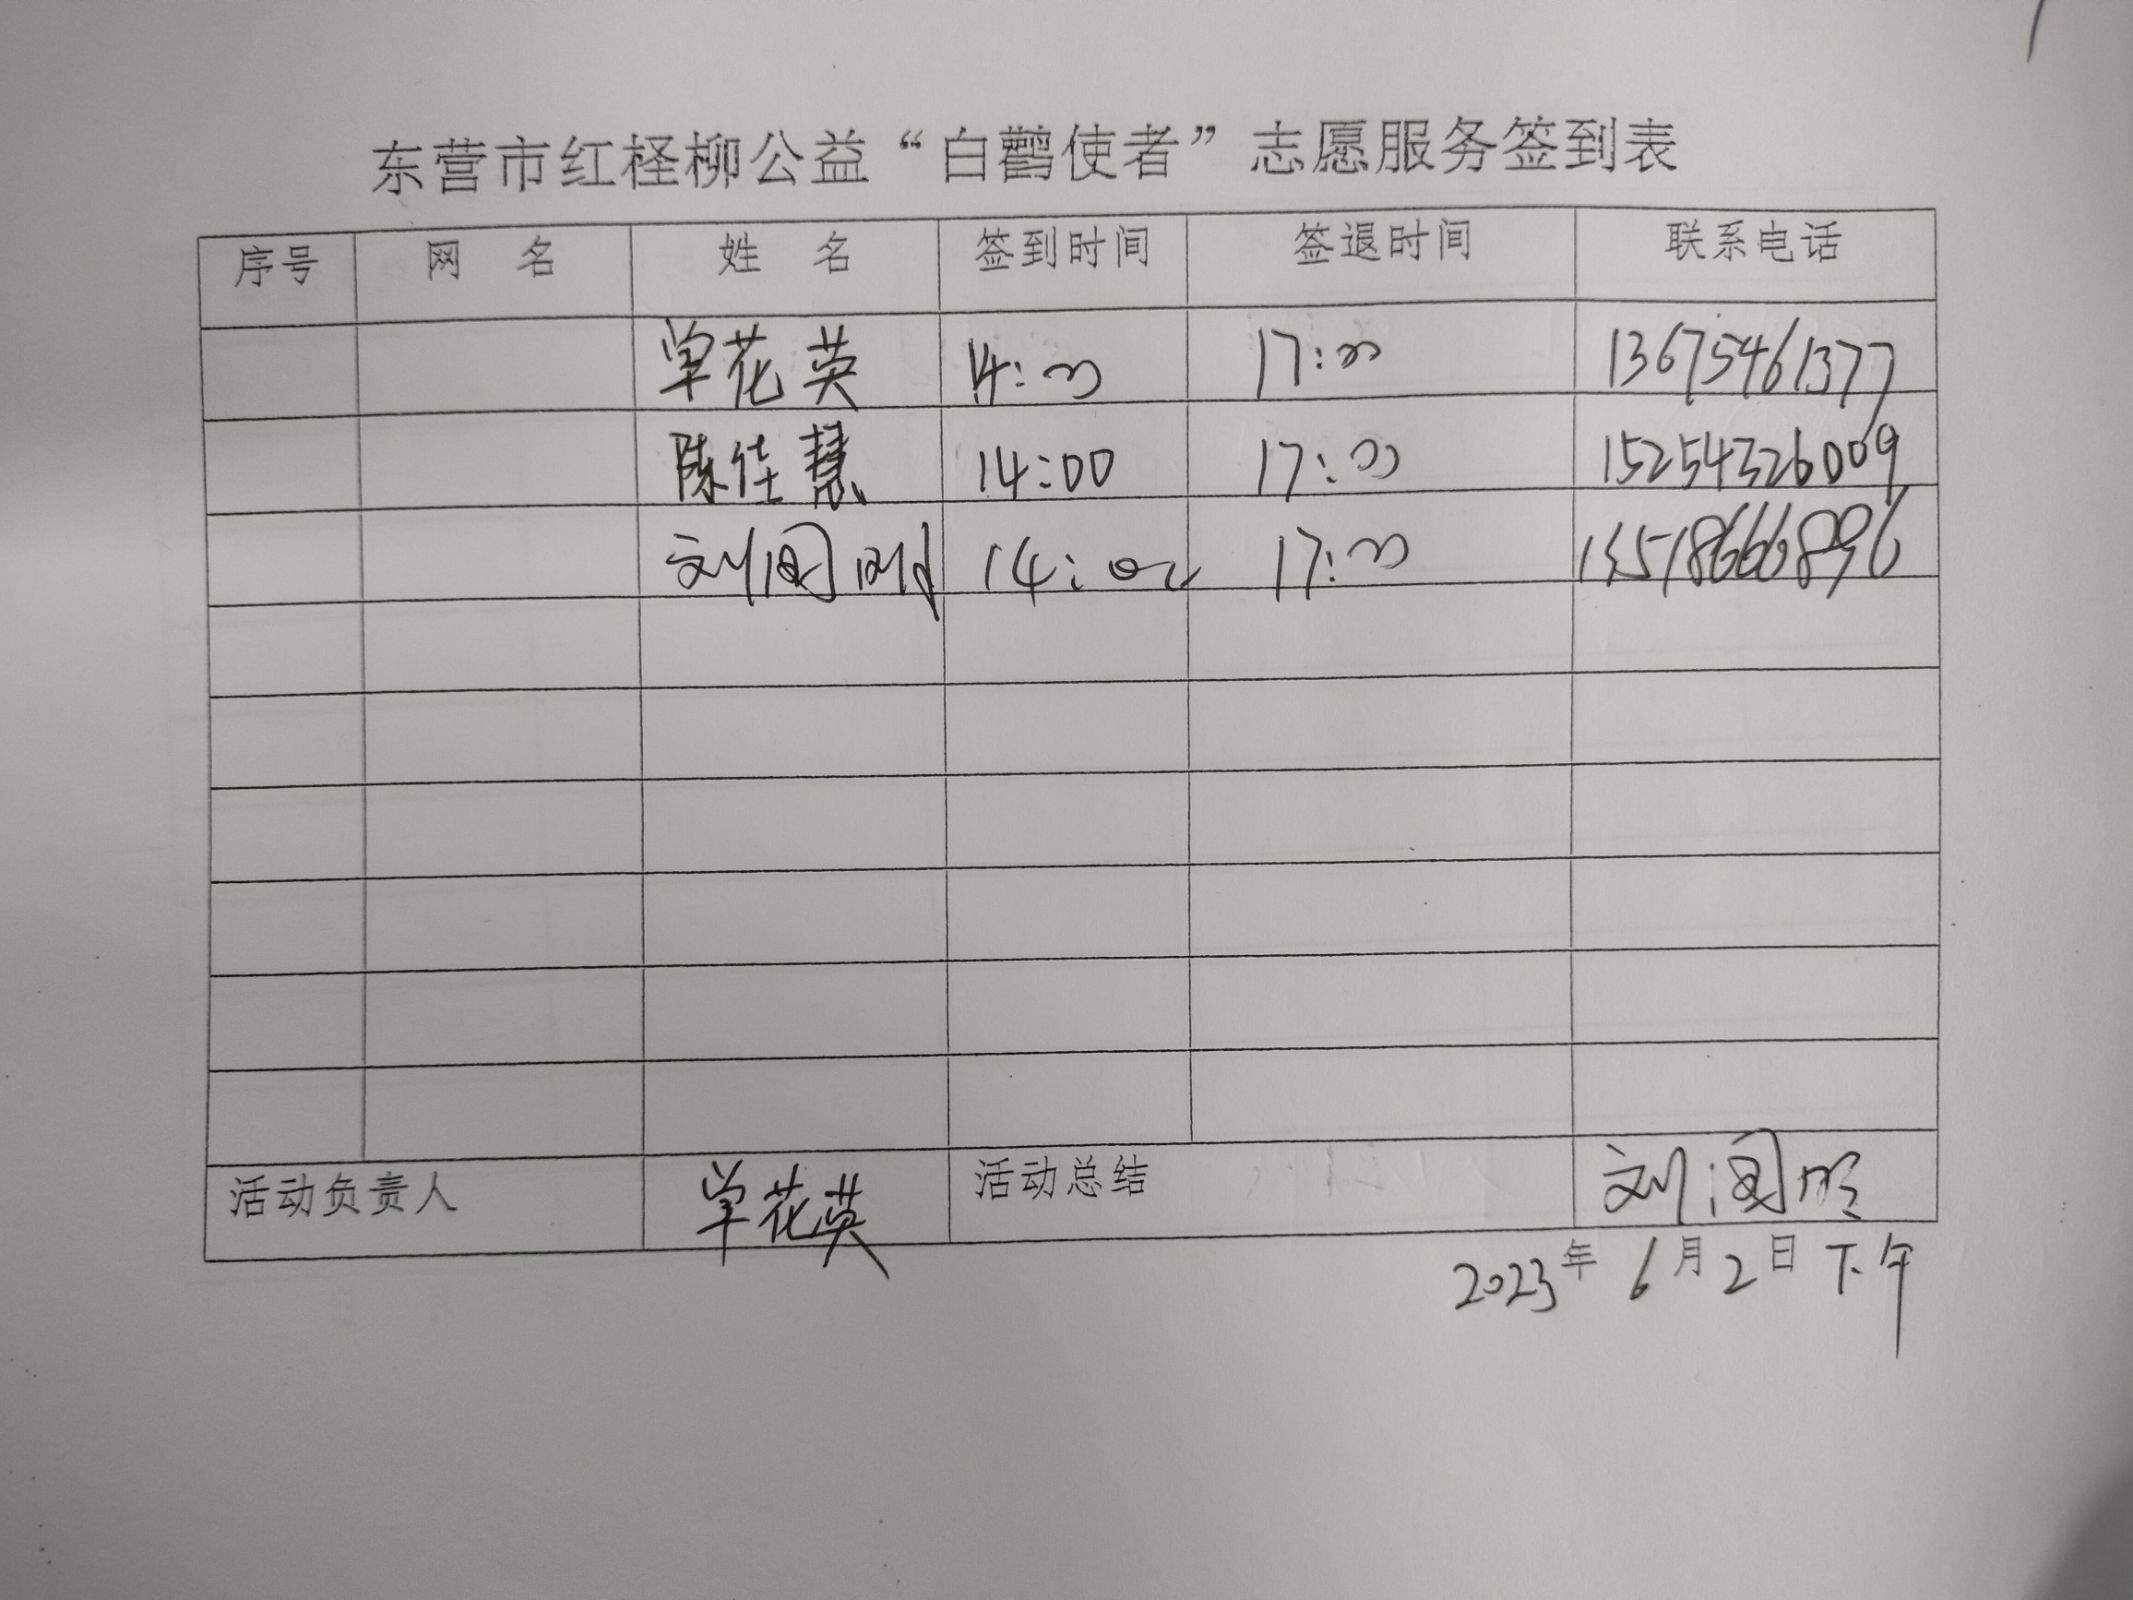 东营市红柽柳公益“白鹳使者”志愿服务签到表
序号 网 名 姓 名 签到时间 签退时间 联系电话
单花英 14:00 17:00 13675461377
陈佳慧 14:00 17:00 15254326009
刘 14:00 17:00
活动负责人 单花英 活动总结 刘
2023年 6月2日 下午